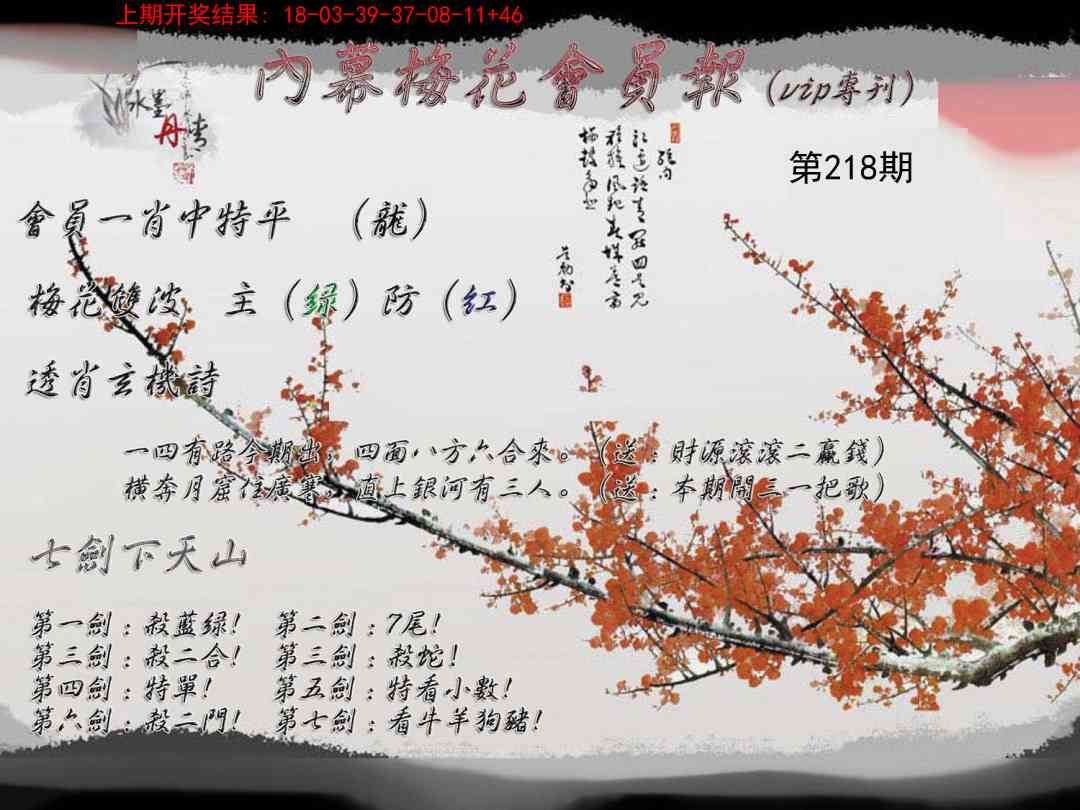 上期开奖结果: 18-03-39-37-08-11+46
內幕梅花會員報(vip專刊)
水墨
丹青
第218期
會員一肖中特平 (龍)
梅花雙波 主(绿)防(红)
透肖玄機詩
一四有路今期出，四面八方六合來。(送:財源滾滾二贏錢)
橫奔月窟住廣寒，直上銀河有三人。(送:本期開三一把歌)
七劍下天山
第一劍:殺藍绿! 第二劍:7尾!
第三劍:殺二合! 第三劍:殺蛇!
第四劍:特單! 第五劍:特看小數!
第六劍:殺二門! 第七劍:看牛羊狗豬!